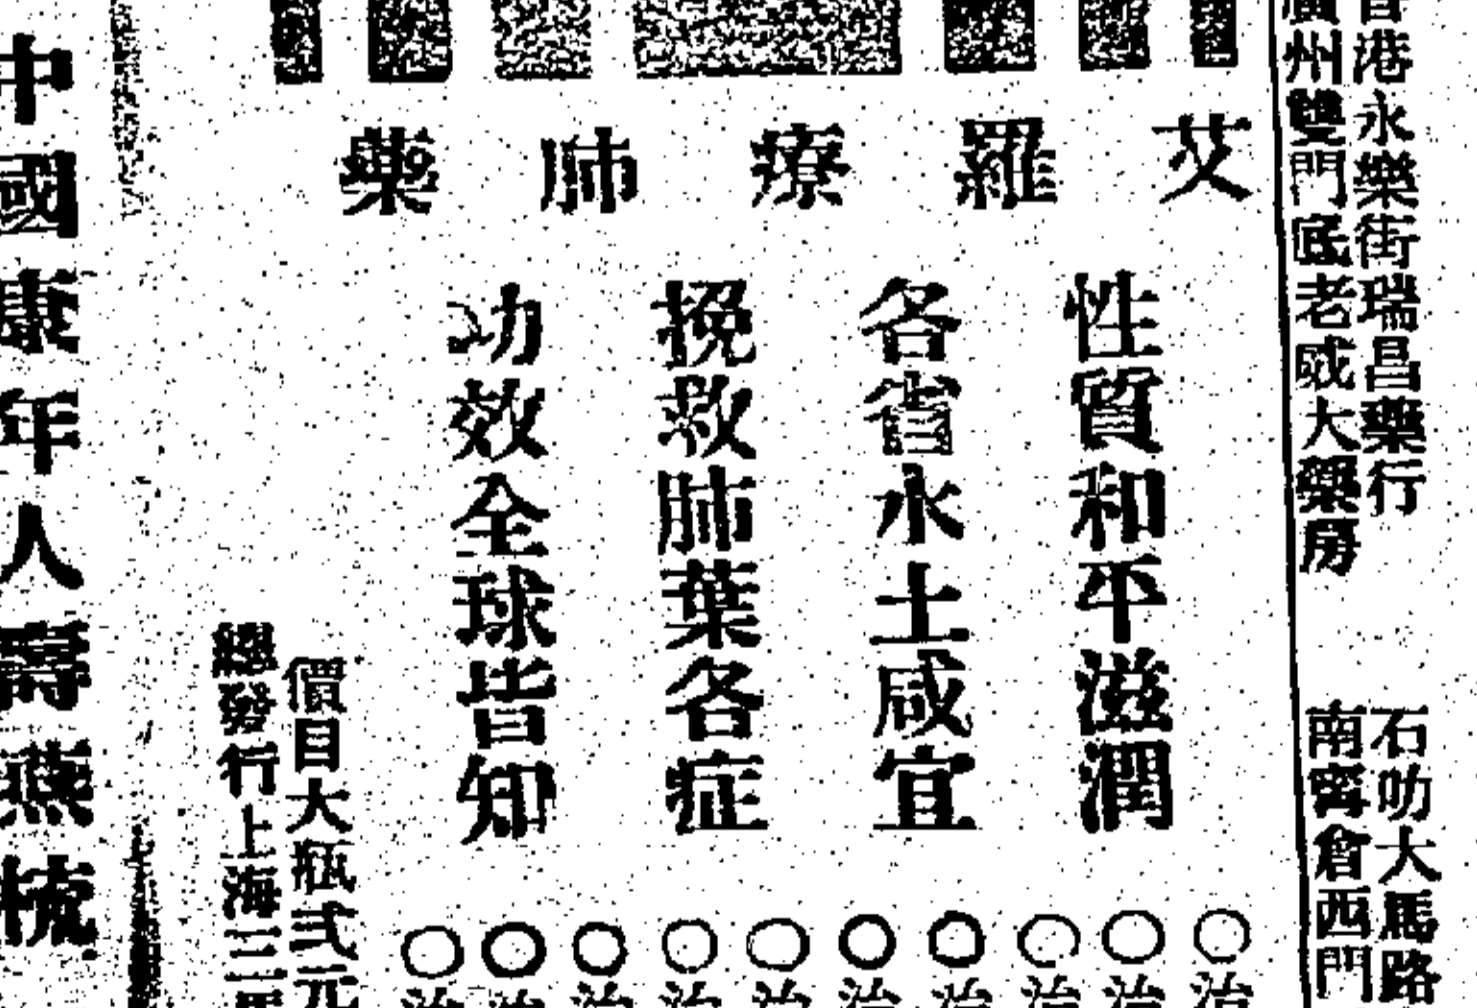 香港永樂街瑞昌藥行
石叻大馬路
廣州雙門底老威大藥房
南寧倉西門
艾羅療肺藥
性質和平滋潤
各省水土咸宜
挽救肺葉各症
功效全球皆知
○治
○治
○治
○治
○治
○治
○治
○治
○治
○治
價目大瓶弍元
總發行上海三馬
中國康年人壽燕梳